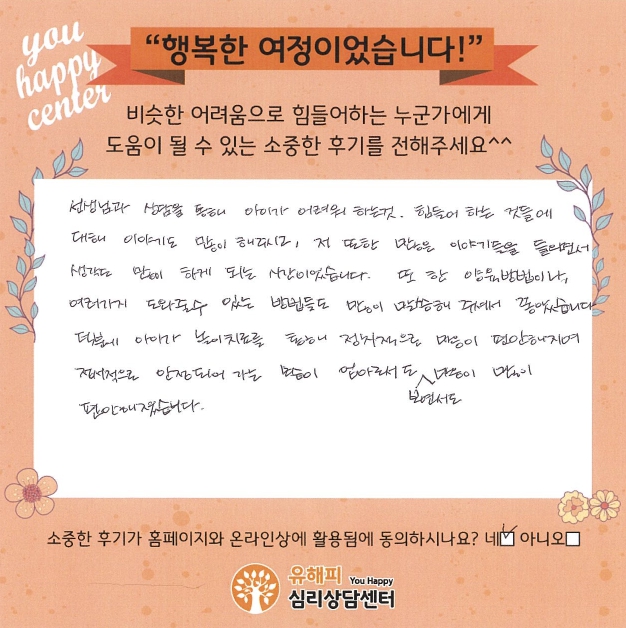 you
happy
center
“행복한 여정이었습니다!”
비슷한 어려움으로 힘들어하는 누군가에게
도움이 될 수 있는 소중한 후기를 전해주세요^^
선생님과 상담을 통해 아이가 어려워 하는것. 힘들어 하는 것들에
대해 이야기도 많이 해주시고, 저 또한 많은 이야기들을 들으면서
생각도 많이 하게 되는 시간이었습니다. 또 한 양육방법이나,
여러가지 도와줄수 있는 방법들도 많이 말씀해 주셔서 좋았습니다
덕분에 아이가 놀이치료를 통해 정서적으로 마음이 편안해지며
정서적으로 안정되어 가는 모습이 엄마로서도 보면서도 마음이 많이
편안해졌습니다.
소중한 후기가 홈페이지와 온라인상에 활용됨에 동의하시나요? 네☑ 아니오□
유해피 You Happy
심리상담센터